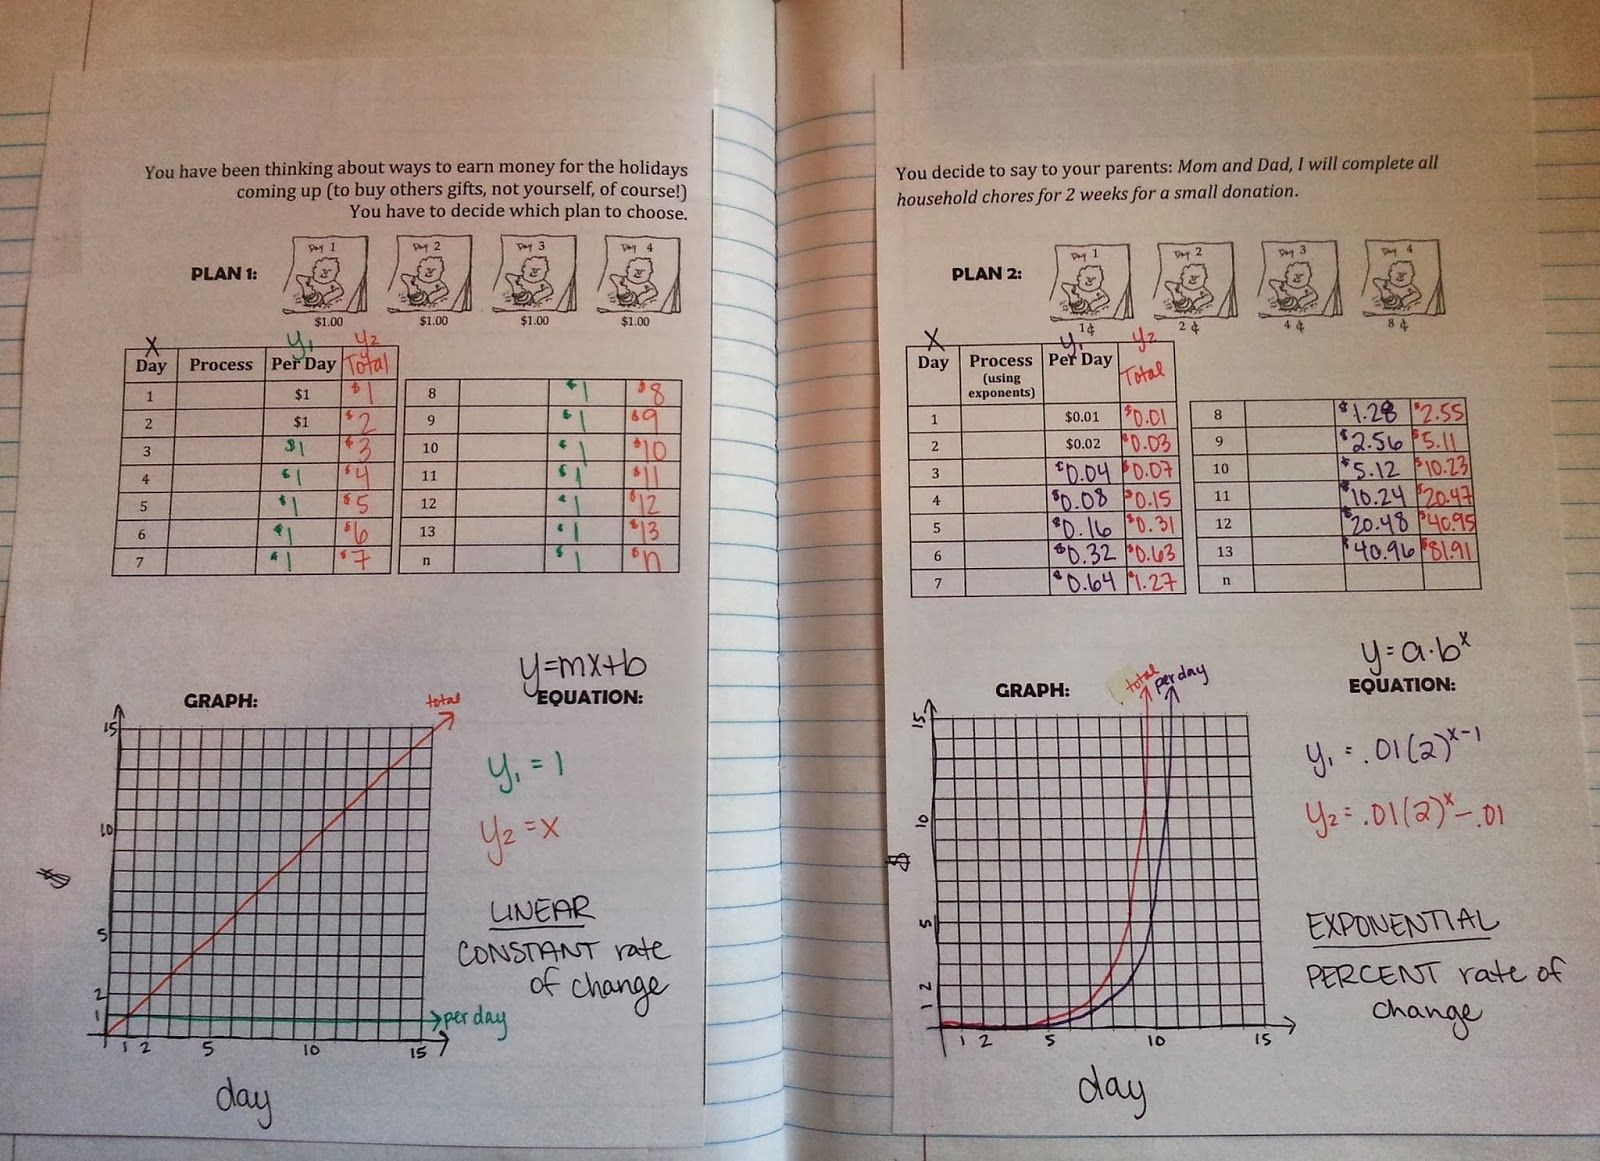 You have been thinking about ways to earn money for the holidays
coming up (to buy others gifts, not yourself, of course!)
You have to decide which plan to choose.
PLAN 1:
Day 1
Day 2
Day 3
Day 4
$1.00
$1.00
$1.00
$1.00
x y₁ y₂
Day Process Per Day Total
1 $1 $1
2 $1 $2
3 $1 $3
4 $1 $4
5 $1 $5
6 $1 $6
7 $1 $7
8 $1 $8
9 $1 $9
10 $1 $10
11 $1 $11
12 $1 $12
13 $1 $13
n $1 $n
y=mx+b
GRAPH:
EQUATION:
total
15
10
5
2
1
$
per day
1 2 5 10 15
day
y₁ = 1
y₂ = x
LINEAR
CONSTANT rate
of change
You decide to say to your parents: Mom and Dad, I will complete all
household chores for 2 weeks for a small donation.
PLAN 2:
Day 1
Day 2
Day 3
Day 4
1¢
2¢
4¢
8¢
x y₁ y₂
Day Process Per Day Total
(using
exponents)
1 $0.01 $0.01
2 $0.02 $0.03
3 $0.04 $0.07
4 $0.08 $0.15
5 $0.16 $0.31
6 $0.32 $0.63
7 $0.64 $1.27
8 $1.28 $2.55
9 $2.56 $5.11
10 $5.12 $10.23
11 $10.24 $20.47
12 $20.48 $40.95
13 $40.96 $81.91
n
y=a·bˣ
GRAPH:
EQUATION:
total
per day
15
10
5
2
1
$
1 2 5 10 15
day
y₁ = .01(2)ˣ⁻¹
y₂ = .01(2)ˣ - .01
EXPONENTIAL
PERCENT rate of
change